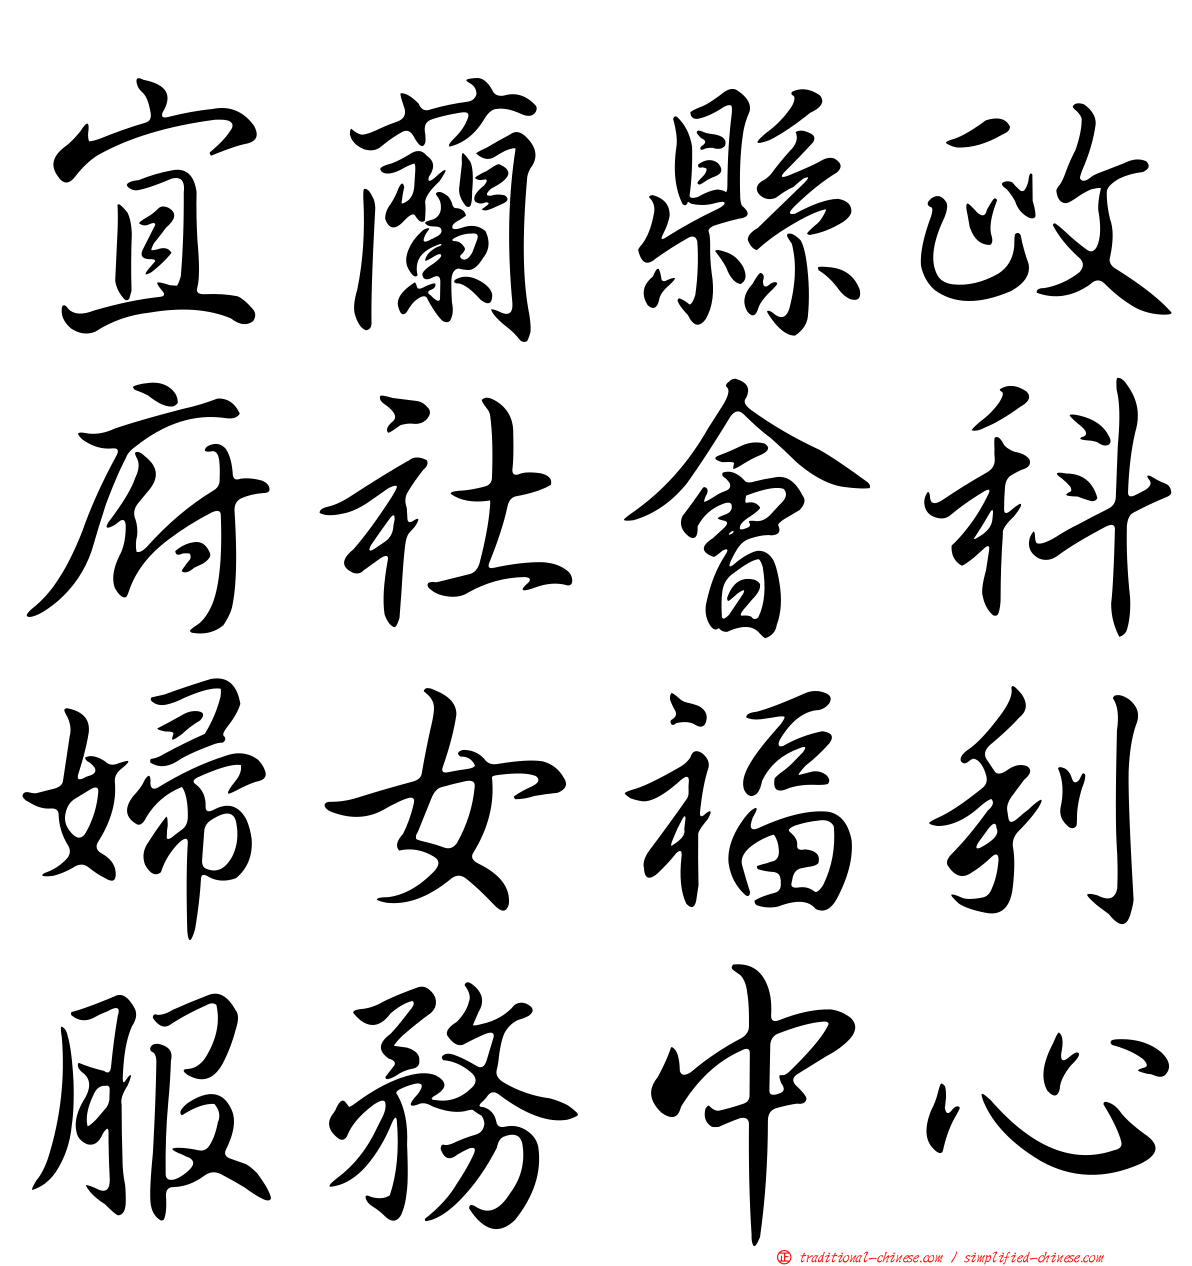 宜蘭縣政
府社會科
婦女福利
服務中心
正 traditional-chinese.com / simplified-chinese.com